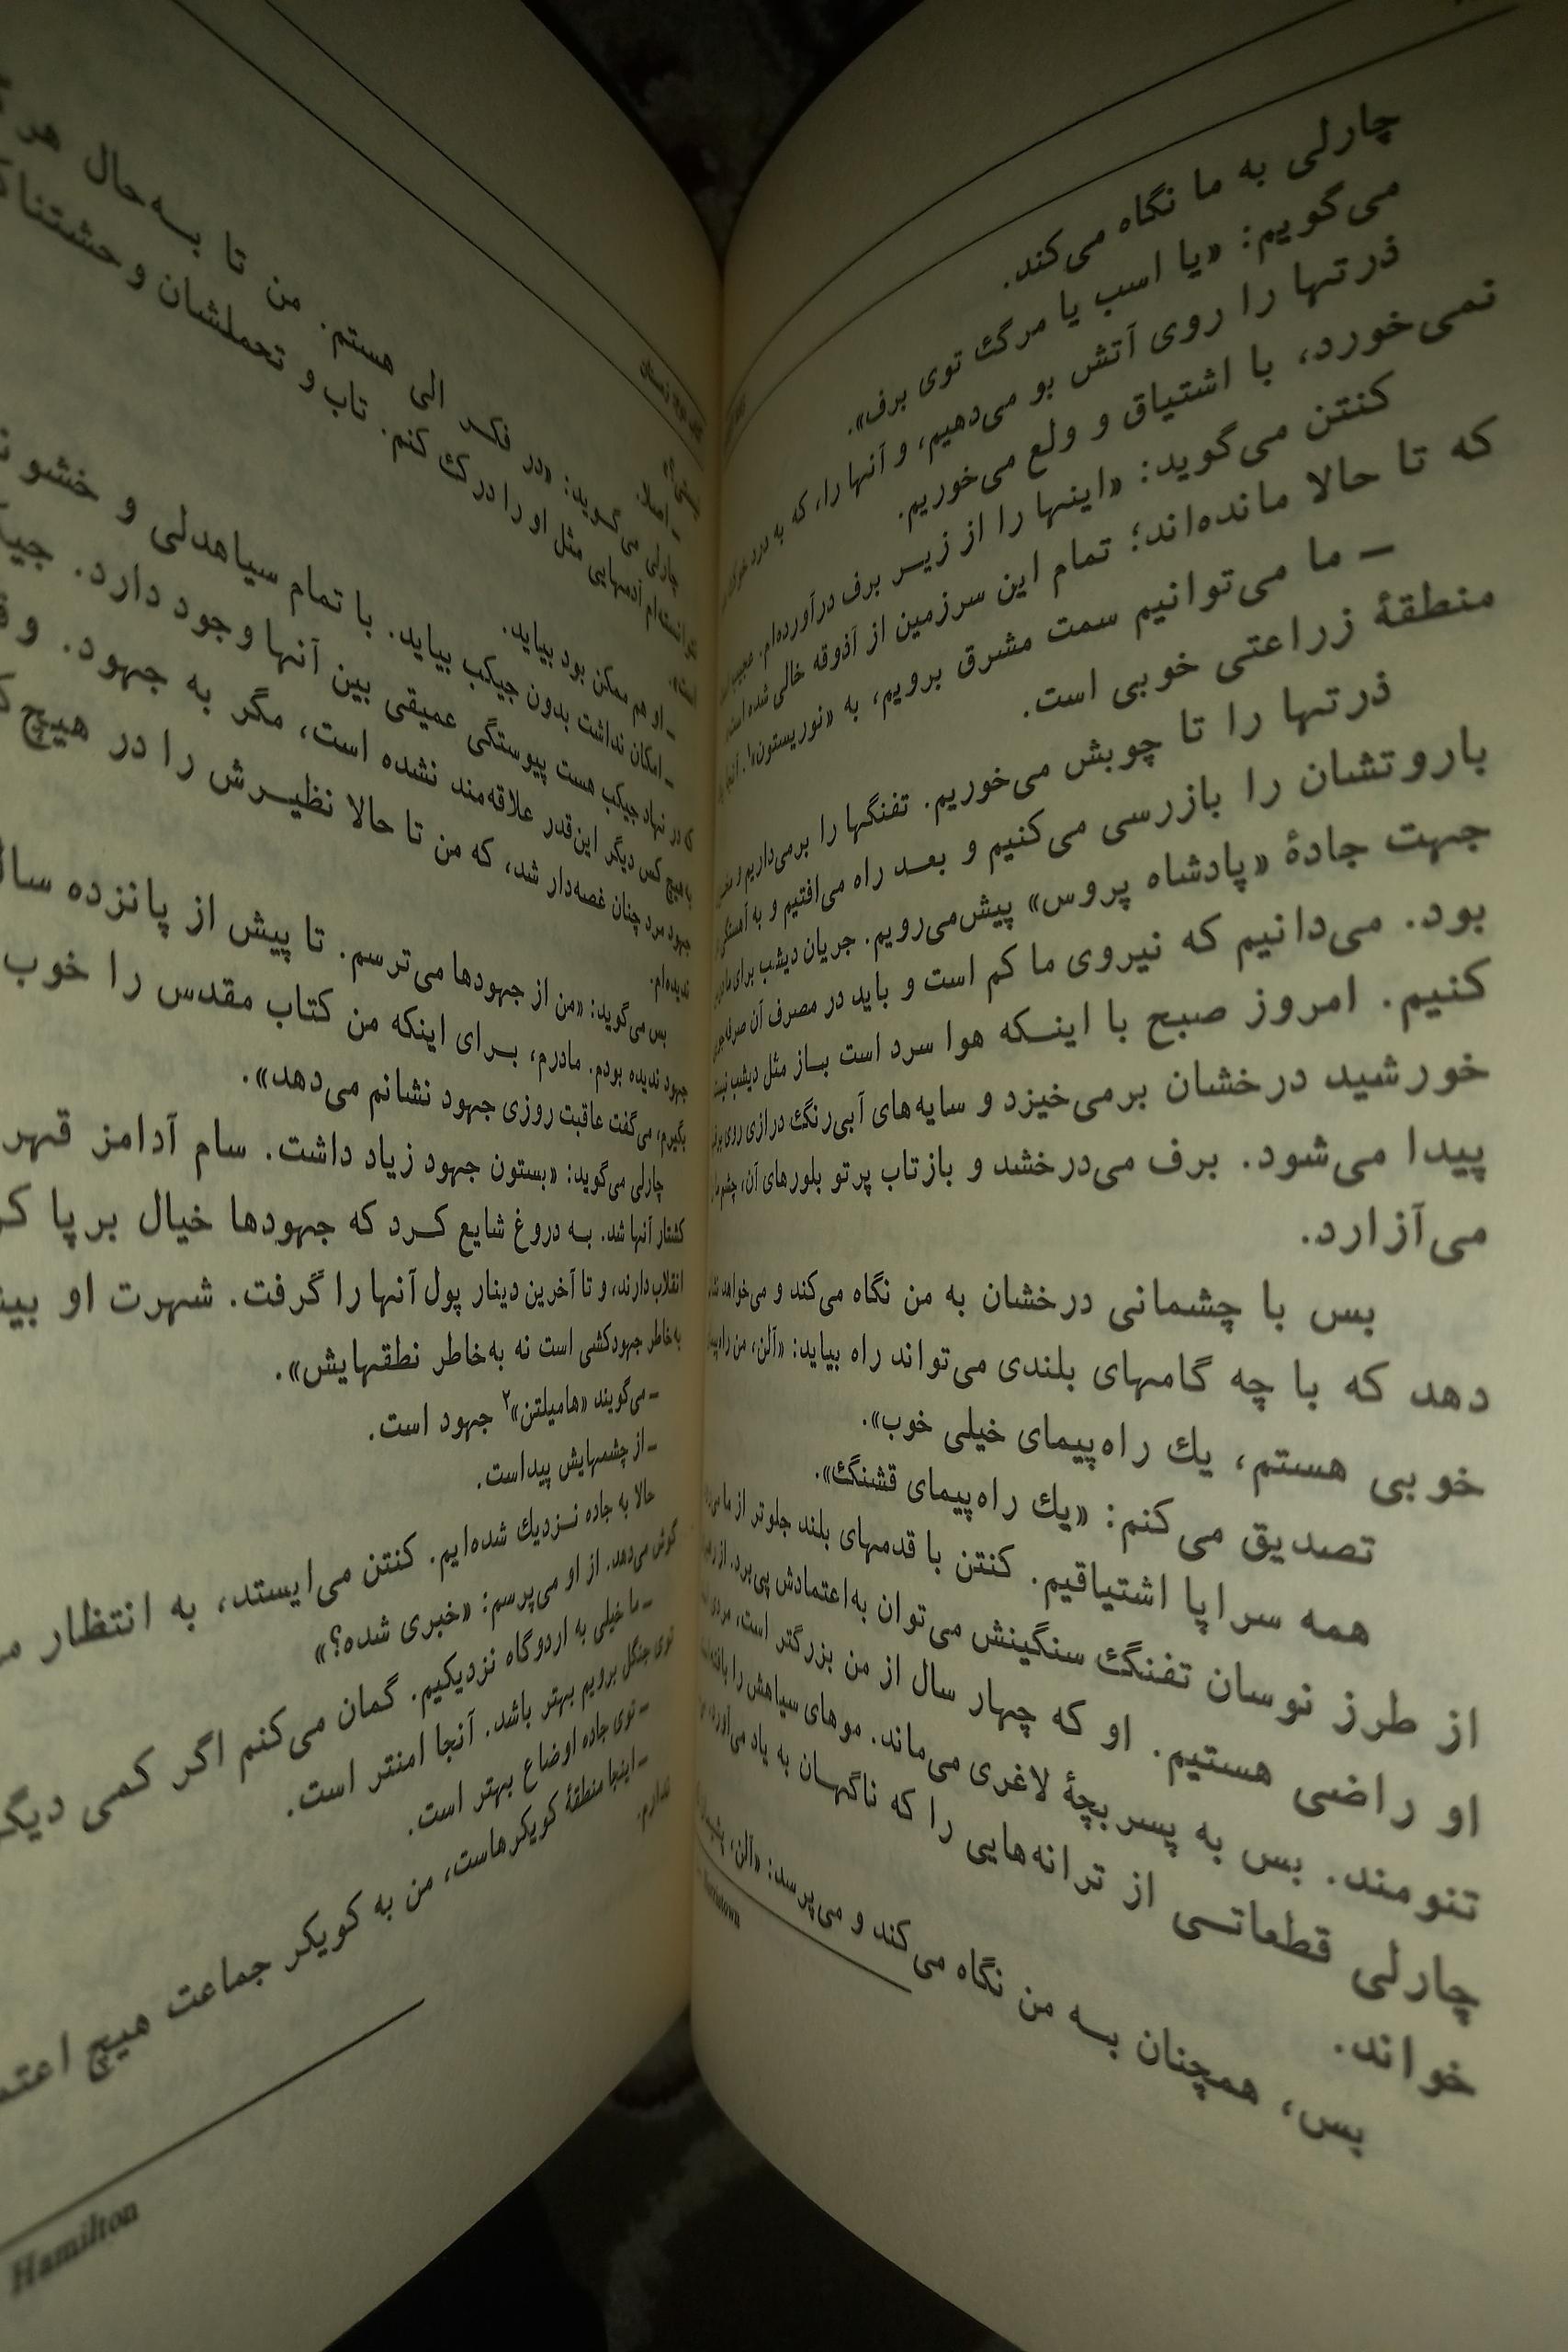 چارلی به ما نگاه می‌کند.
می‌گویم: «یا اسب یا مرگ توی برف».
ذرتها را روی آتش بو می‌دهیم، و آنها را، که به درد
نمی‌خورد، با اشتیاق و ولع می‌خوریم.
کنتن می‌گوید: «اینها را از زیر برف درآورده‌ام.
که تا حالا مانده‌اند؛ تمام این سرزمین از آذوقه خالی شده است
ـ ما می‌توانیم سمت مشرق برویم، به «نوریستون»۱.
منطقهٔ زراعتی خوبی است.
ذرتها را تا چوبش می‌خوریم. تفنگها را برمی‌داریم و
باروتشان را بازرسی می‌کنیم و بعد راه می‌افتیم و به آهستگی
جهت جادهٔ «پادشاه پروس» پیش‌می‌رویم. جریان دیشب برای ما
بود. می‌دانیم که نیروی ما کم است و باید در مصرف آن
کنیم. امروز صبح با اینکه هوا سرد است باز مثل دیشب نیست
خورشید درخشان برمی‌خیزد و سایه‌های آبی‌رنگ درازی روی برف
پیدا می‌شود. برف می‌درخشد و بازتاب پرتو بلورهای آن، چشم
می‌آزارد.
بس با چشمانی درخشان به من نگاه می‌کند و می‌خواهد نشان
دهد که با چه گامهای بلندی می‌تواند راه بیاید: «آلن، من
خوبی هستم، یك راه‌پیمای خیلی خوب».
تصدیق می‌کنم: «یك راه‌پیمای قشنگ».
همه سراپا اشتیاقیم. کنتن با قدمهای بلند جلوتر از ما
از طرز نوسان تفنگ سنگینش می‌توان به‌اعتمادش پی‌برد.
او راضی هستیم. او که چهار سال از من بزرگتر است، مردی
تنومند. بس به پسربچهٔ لاغری می‌ماند. موهای سیاهش را بافته
چارلی قطعاتی از ترانه‌هایی را که ناگهان به یاد می‌آورد،
خواند.
بس، همچنان به من نگاه می‌کند و می‌پرسد: «آلن،
ـ اصلا.
چارلی می‌گوید: «در فکر الی هستم. من تا به‌حال هر
نتوانسته‌ام آدمهایی مثل او را درک کنم. تاب و تحملشان وحشتناک
است».
ـ او هم ممکن بود بیاید.
ـ امکان نداشت بدون جیکب بیاید. با تمام سیاهدلی و
در نهاد جیکب هست پیوستگی عمیقی بین آنها وجود دارد.
با هیچ کس دیگر این‌قدر علاقه‌مند نشده است، مگر به جهود.
جهود مرد چنان غصه‌دار شد، که من تا حالا نظیرش را در هیچ
ندیده‌ام.
بس می‌گوید: «من از جهودها می‌ترسم. تا پیش از پانزده
جهود ندیده بودم. مادرم، برای اینکه من کتاب مقدس را خوب
بگیرم، می‌گفت عاقبت روزی جهود نشانم می‌دهد».
چارلی می‌گوید: «بستون جهود زیاد داشت. سام آدامز
کشتار آنها شد. به دروغ شایع کرد که جهودها خیال برپا
انقلاب دارند، و تا آخرین دینار پول آنها را گرفت. شهرت او
به‌خاطر جهودکشی است نه به‌خاطر نطقهایش».
ـ می‌گویند «هامیلتن»۲ جهود است.
ـ از چشمهایش پیداست.
حالا به جاده نزدیك شده‌ایم. کنتن می‌ایستد، به انتظار
گوش می‌دهد. از او می‌پرسم: «خبری شده؟»
ـ ما خیلی به اردوگاه نزدیکیم. گمان می‌کنم اگر کمی
توی جنگل برویم بهتر باشد. آنجا امنتر است.
ـ توی جاده اوضاع بهتر است.
ـ اینجا منطقهٔ کویکرهاست، من به کویکر جماعت هیچ
ندارم.
Hamilton